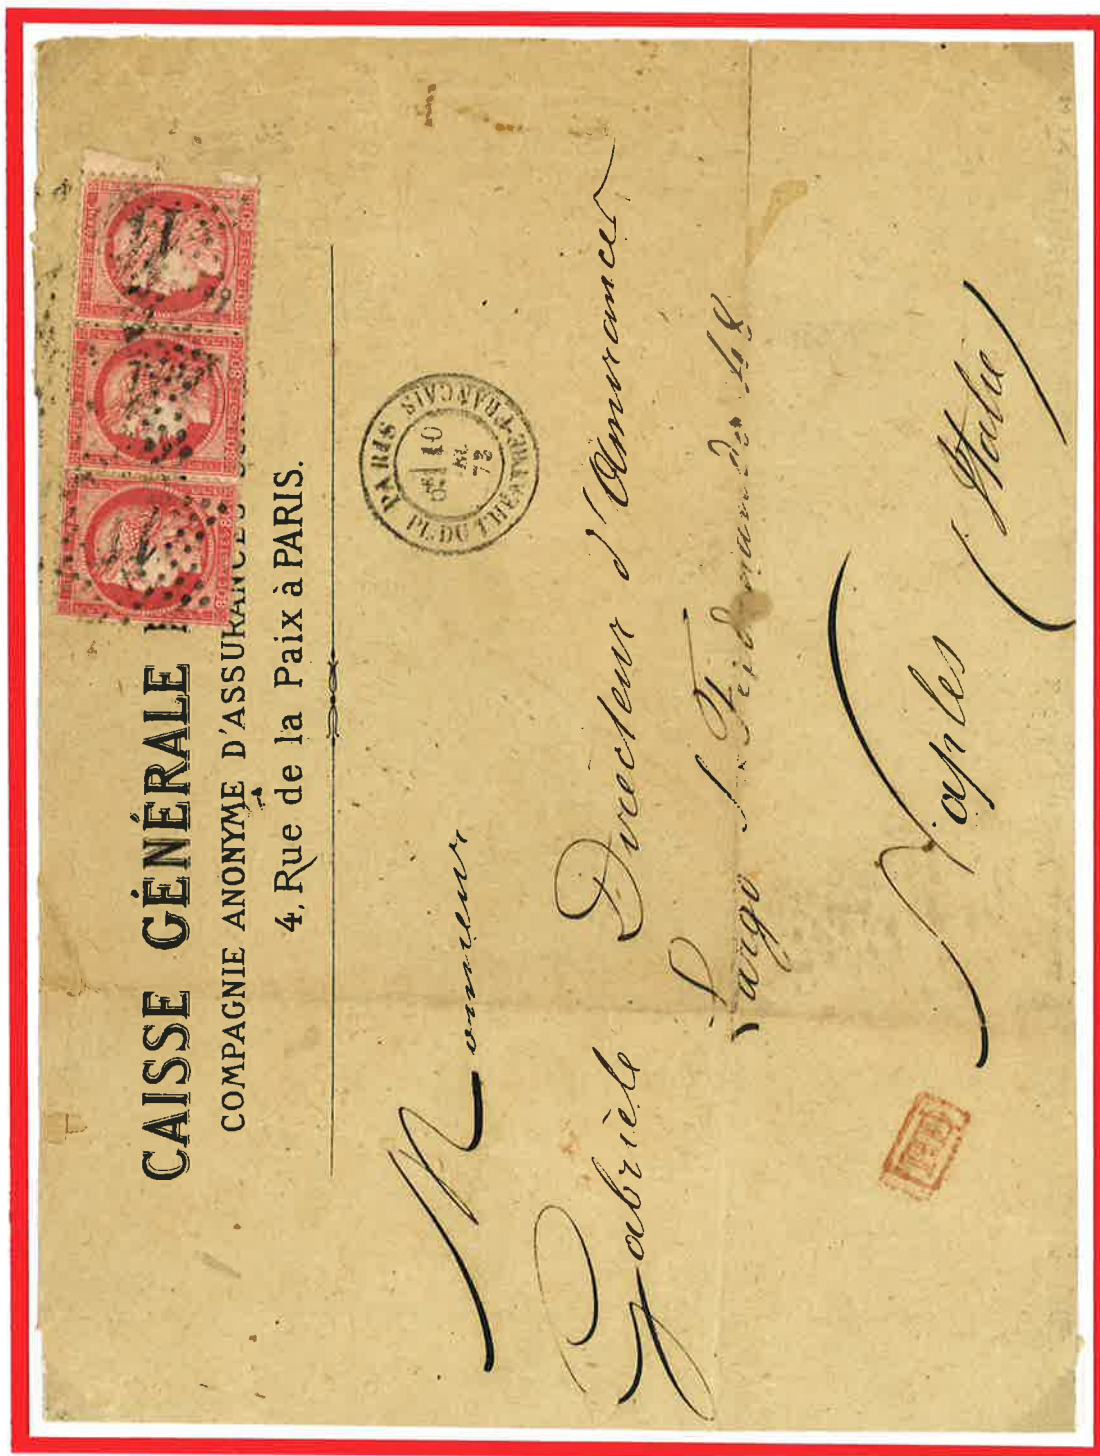 CAISSE GÉNÉRALE
COMPAGNIE ANONYME D'ASSURANCES
4, Rue de la Paix à PARIS.
PARIS PL. DU THÉATRE-FRANÇAIS
10
72
Monsieur
Gabriele Directeur d'Assurances
Largo S. Ferdinando 48
Naples (Italie)
PD